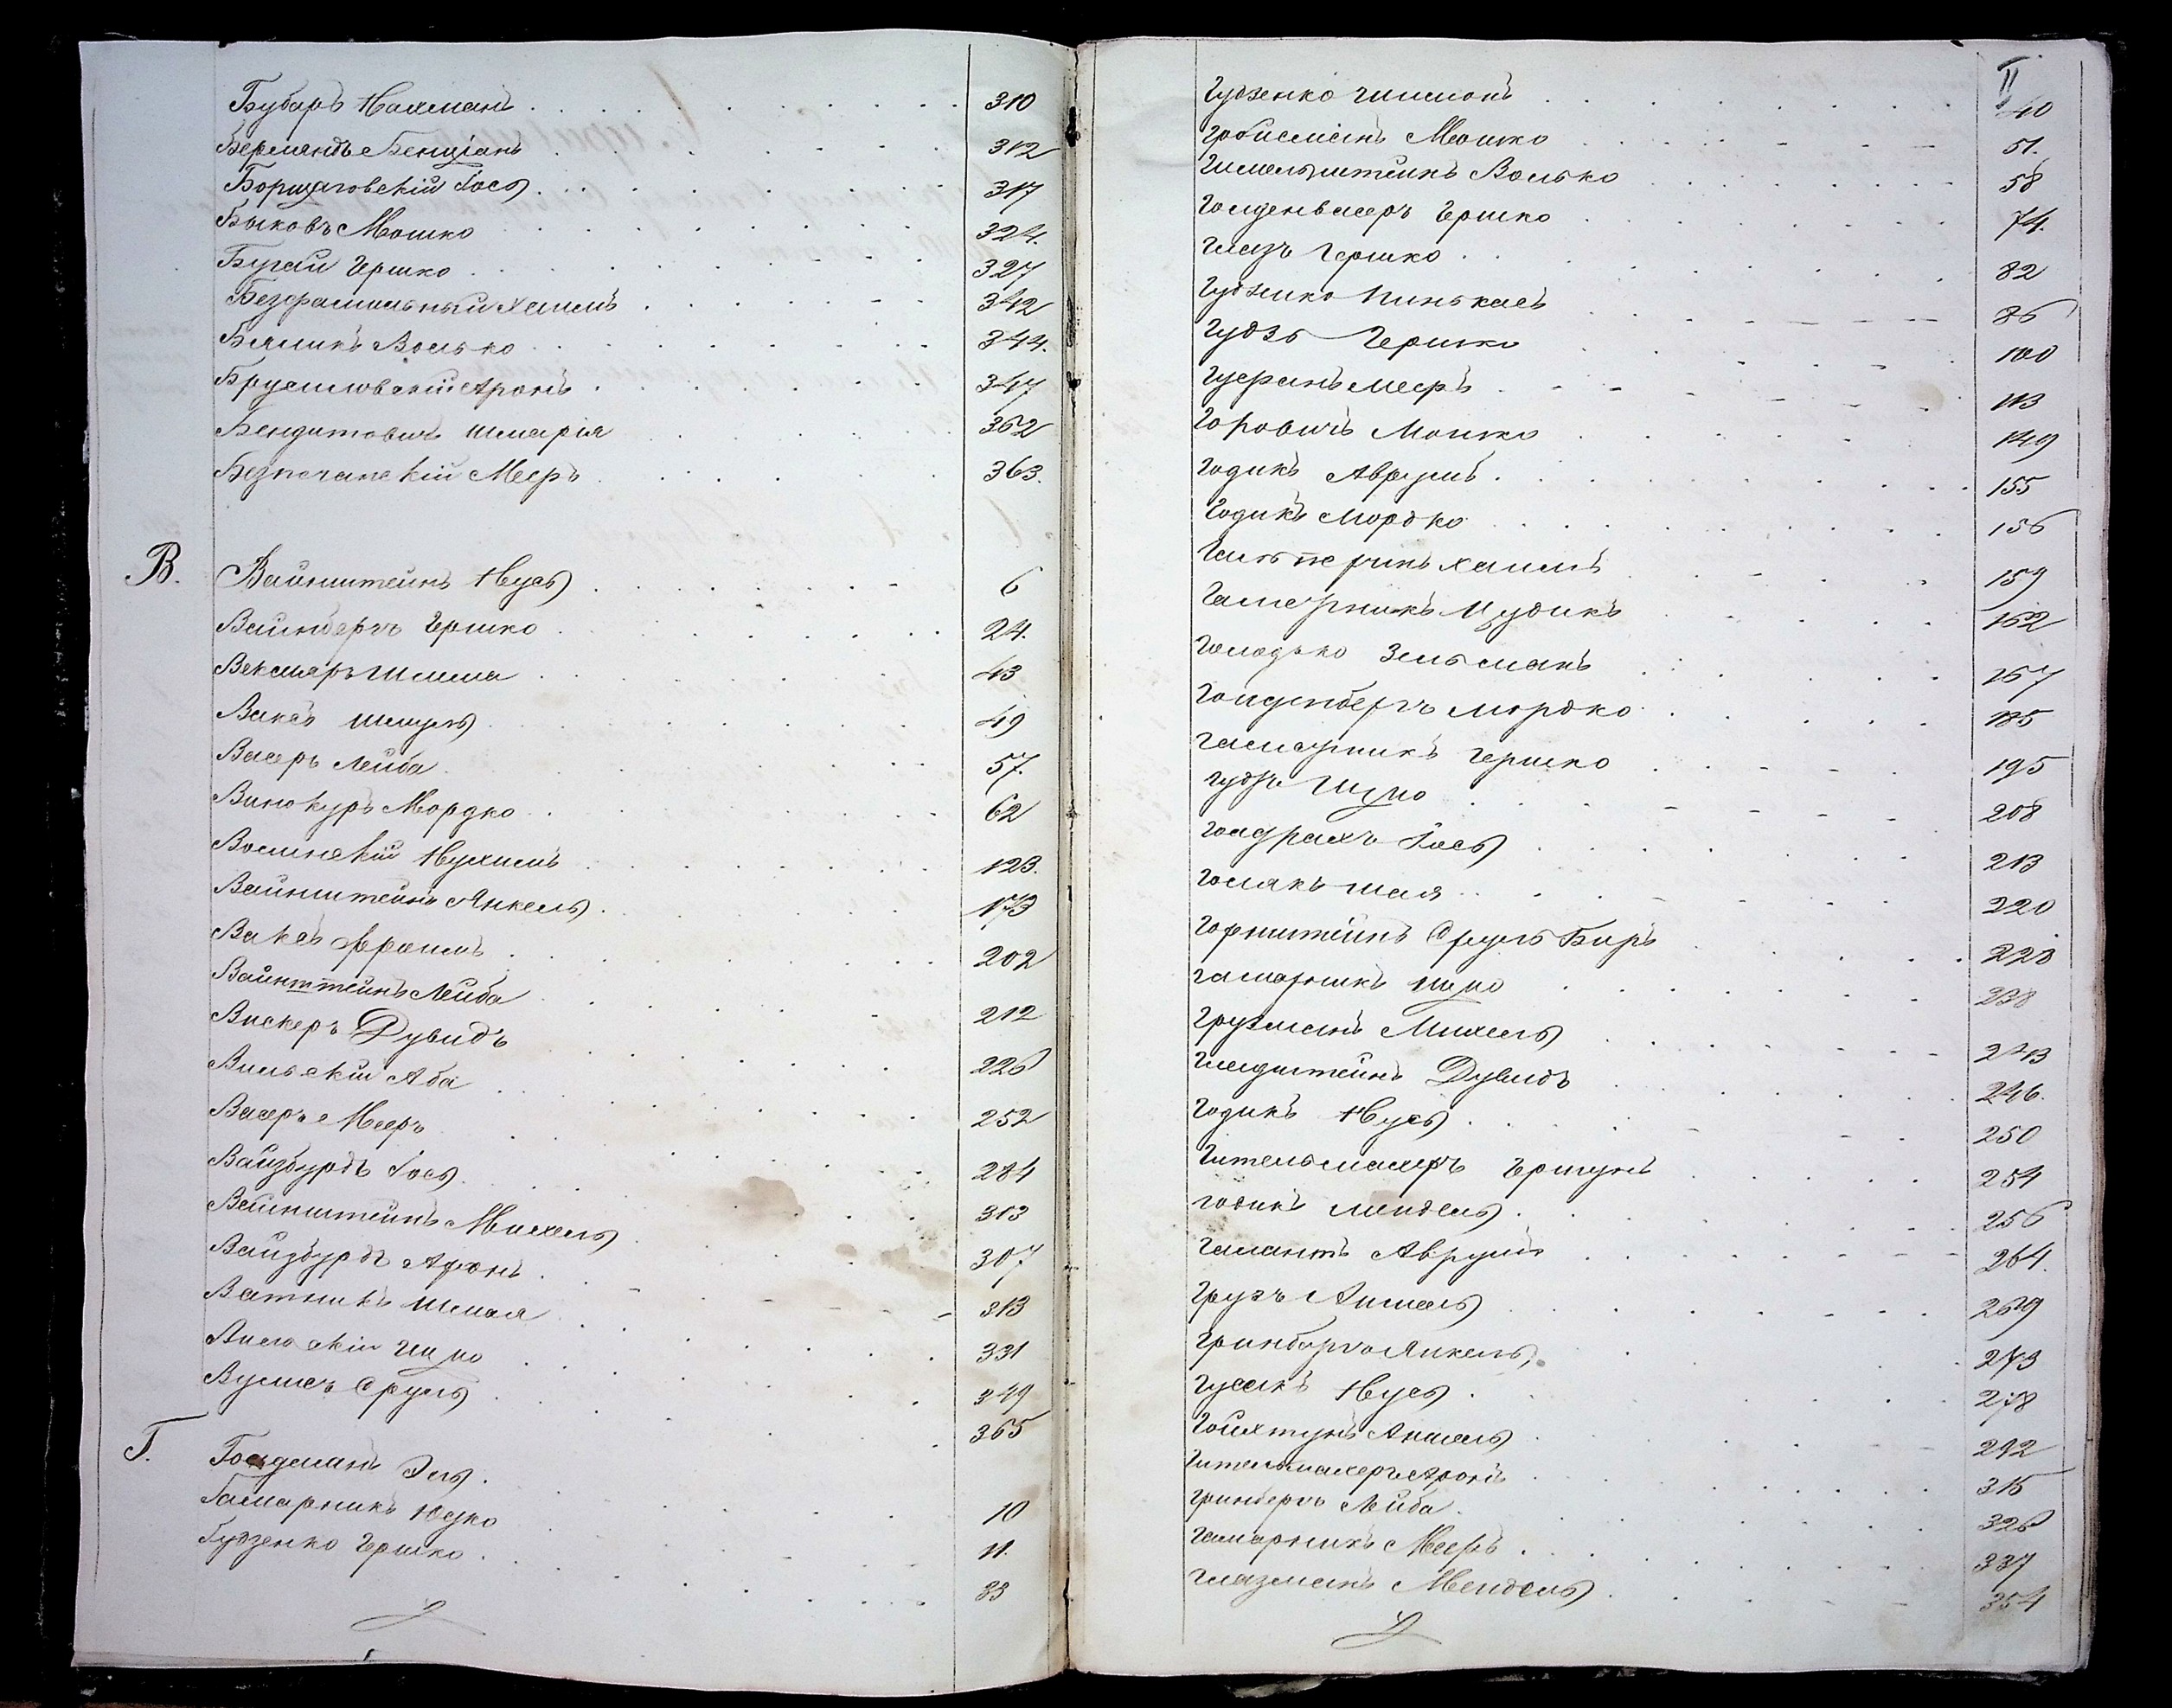 Бубаръ Нахманъ 310
Берляндъ Бенціанъ 312
Борщаговскій Іось 317
Быковъ Мошко 324.
Бугай Гершко 327
Безфамильный Хаимъ 342
Бяликъ Волько 344.
Брусиловскій Аронъ 347
Бендитовичъ Шмарія 362
Безпечанскій Мееръ 363.
В. Вайнштейнъ Нусь 6
Вайнбергъ Гершко 24.
Векслеръ Шлема 43
Ваксъ Шмуль 49
Васеръ Лейба 57.
Винокуръ Мордко 62
Волинскій Нухимъ 123.
Вайнштейнъ Янкель 173
Ваксъ Фроимъ 202
Вайнштейнъ Лейба 212
Вискеръ Дувидъ 226
Вильскій Аба 252
Васеръ Мееръ 284
Вайзбурдъ Іось 303
Вайнштейнъ Михель 307
Вайзбурдъ Аронъ 313
Ватникъ Шмая 331
Вилскій Ицко 349
Вулихъ Сруль 365
Г. Гольдманъ Эль 10
Гамарникъ Юдко 11.
Гудзенко Гершко 33
II
Гудзенко Шимонъ 40
Гробисманъ Мошко 51.
Гимельштейнъ Волько 58
Голденвасеръ Гершко 74.
Глазъ Гершко 82
Гудзенко Пинькасъ 86
Гудзь Гершко 100
Гусманъ Мееръ 113
Горовичъ Мошко 149
Годикъ Аврумъ 155
Годикъ Мордко 156
Гальперинъ Хаимъ 159
Гамарникъ Иудикъ 162
Голодько Зельманъ 167
Голденбергъ Мордко 185
Гамарникъ Гершко 195
Гудзь Ицко 208
Гольдрахъ Іось 213
Голякъ Шая 220
Горнштейнъ Сруль Беръ 228
Гамарникъ Ицко 238
Грузманъ Михель 243
Гледштейнъ Дувидъ 246.
Годикъ Нусь 250
Гительмахеръ Гершунъ 254
Годикъ Мендель 256
Галантъ Аврумъ 264.
Грузъ Аншель 269
Гринбергъ Янкель 273
Гусакъ Нусь 278
Гойхтунъ Аншель 292
Гительмахеръ Аронъ 315
Гринбергъ Лейба 326
Гамарникъ Мееръ 337
Глазманъ Мендель 354